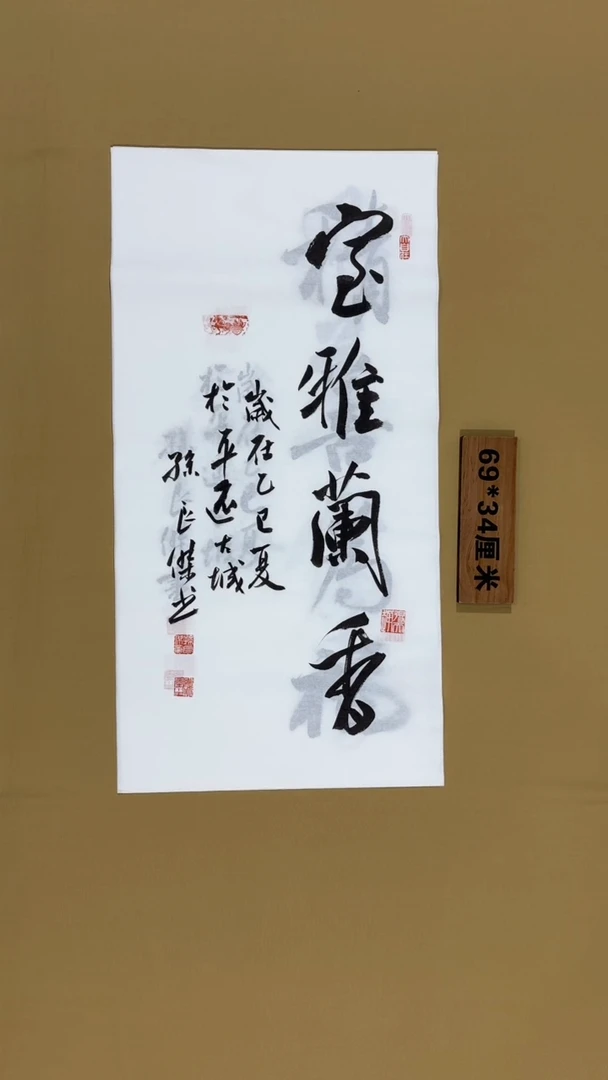 室雅蘭香
歲在乙巳夏
於平遥古城
孫良傑书
69*34厘米